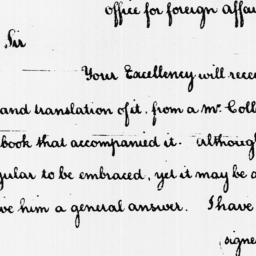 Office for foreign Affai
Sir
Your Excellency will rece
and translation of it, from a Mr. Coll
book that accompanied it. Although
gular to be embraced, yet it may be a
ve him a general answer. I have
signe